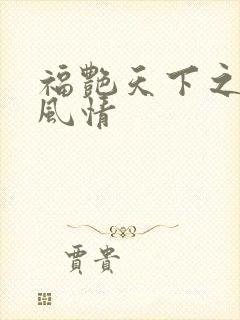 福艷天下之
風情
賈貴